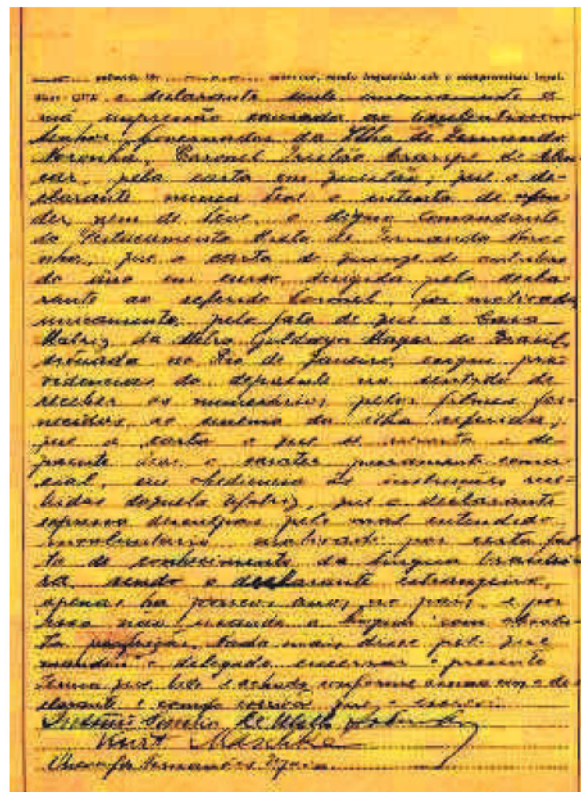 sendo inquerido sob o compromisso legal.
que o declarante sente imensamente a
má impressão causada ao Excelentissimo
Senhor Governador da Ilha de Fernando
Noronha, Coronel Tristão Araripe de Alen
car, pela carta em questão, que o de-
clarante nunca teve o intento de ofen
der, nem de leve, o digno Comandante
do Destacamento Mixto de Fernando Noro
nha, que a carta de quinze de outubro
do ano em curso, dirigida pelo decla-
rante ao referido Coronel, foi motivada
unicamente, pelo fato de que a Casa
Matriz da Metro Goldwyn Mayer do Brasil
situada no Rio de Janeiro, exigiu pro
videncias do depoente no sentido de
receber os numerários, pelos filmes for
necidos ao cinema da ilha referida,
que a carta a que se o de-
poente teve o carater puramente comer
cial, em obediencia às instruções rece
bidas daquela Matriz, que o declarante
expressa desculpas pelo mal entendido
involuntario motivado por certa fal
ta de conhecimento da lingua brasilei
ra, sendo o declarante estrangeiro,
apenas ha poucos anos no pais, e por
isso não usando a lingua com
perfeição. Nada mais disse pelo que
mandou o delegado encerrar o presente
termo que lido e achado conforme assina com o de
clarante e comigo escrivão que o escrevi.
de Mello
Kurt Maschke
Fernandes